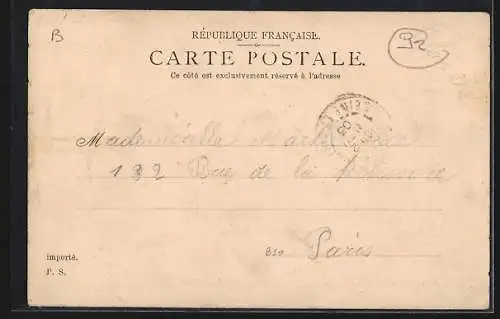 B
RÉPUBLIQUE FRANÇAISE.
92
CARTE POSTALE.
Ce côté est exclusivement réservé à l'adresse
Mademoiselle
132 Rue de la
Paris
importé.
P. S.